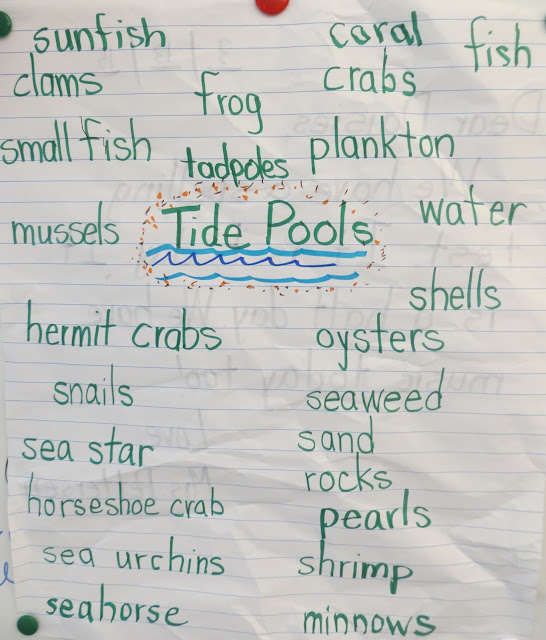 sunfish
coral
fish
clams
frog
crabs
small fish
tadpoles
plankton
mussels
Tide Pools
water
shells
hermit crabs
oysters
snails
seaweed
sea star
sand
rocks
horseshoe crab
pearls
sea urchins
shrimp
seahorse
minnows